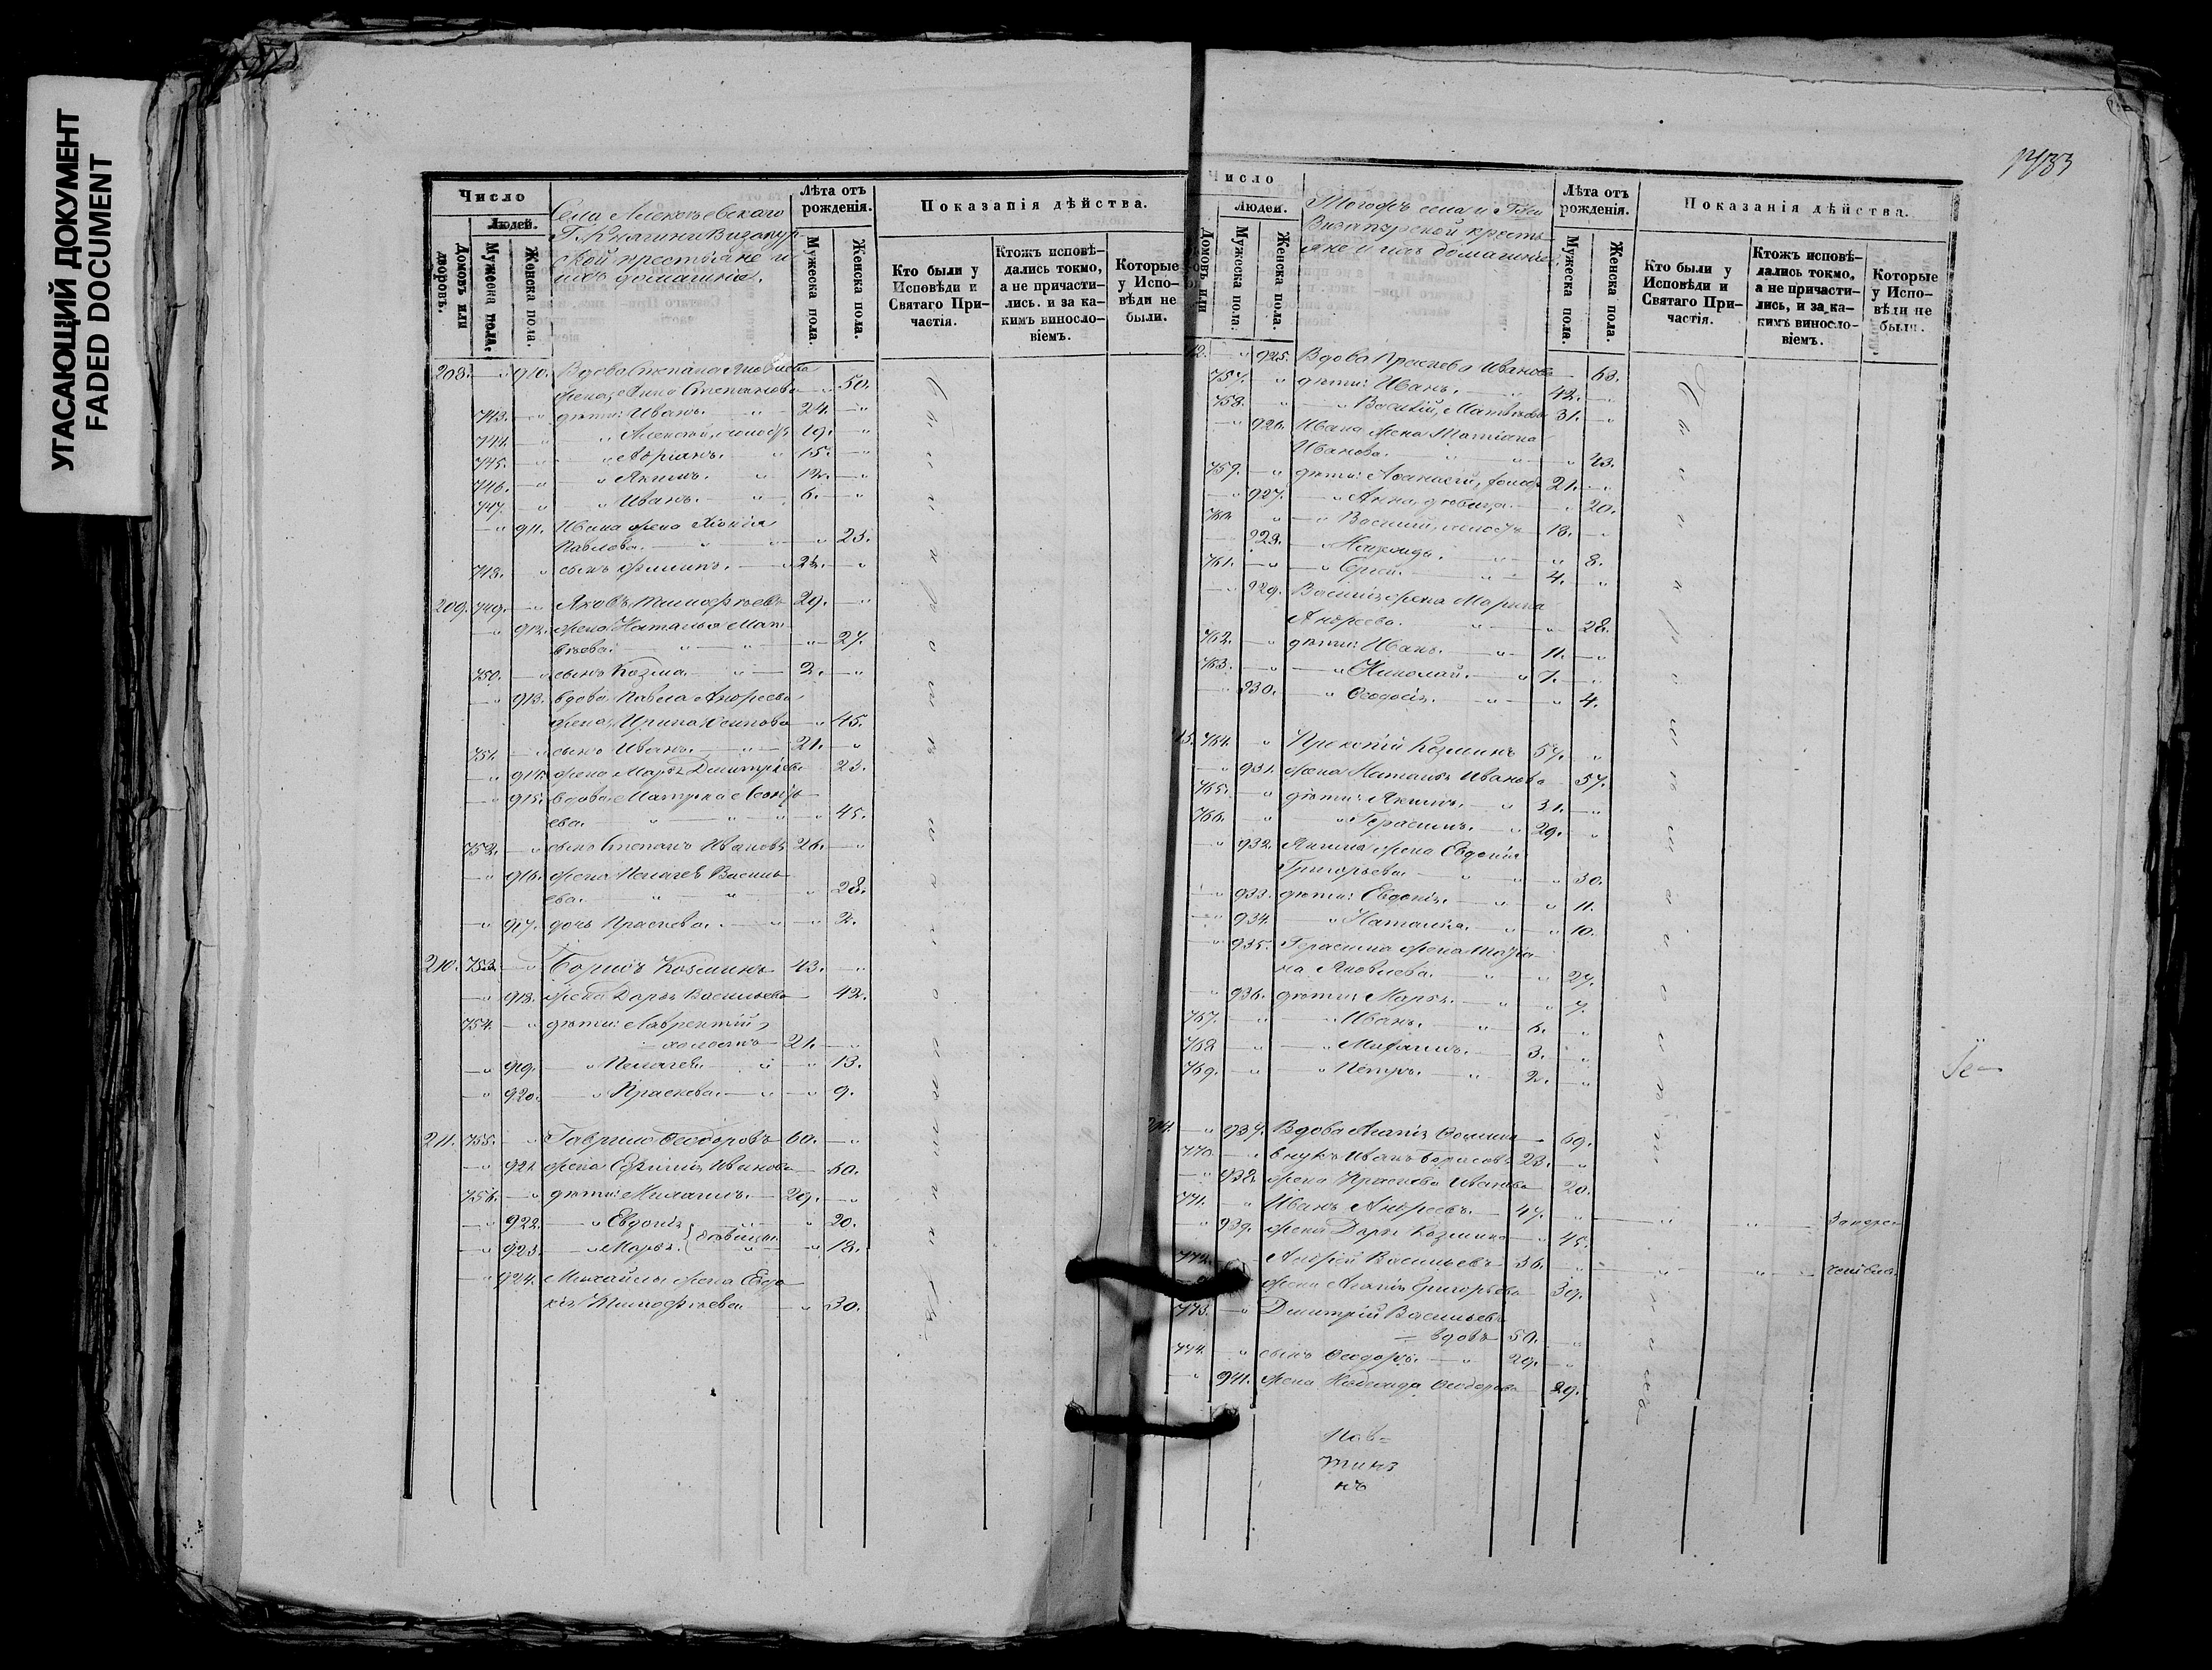 УГАСАЮЩИЙ ДОКУМЕНТ
FADED DOCUMENT
Число
Людей.
Домовъ или дворовъ.
Мужеска пола.
Женска пола.
Села Алексѣевскаго
Г. Княгини Визапур-
ской крестьяне и
ихъ домашніе.
Лѣта отъ рожденія.
Мужеска пола.
Женска пола.
Показанія дѣйства.
Кто были у Исповѣди и Святаго При-частія.
Ктожъ исповѣ-дались токмо, а не причасти-лись. и за ка-кимъ винослo-віемъ.
Которые у Испо-вѣди не были.
208. 910. Вдова Степана
жена Анна Степанова 50.
743. дѣти: Иванъ. 24.
744. Алексѣй, холостъ 19.
745. Адріанъ. 15.
746. Якимъ. 12.
747. Иванъ. 6.
911. Ивана жена
Павлова. 25.
748. сынъ Филипъ.
209. 749. Яковъ Тимофѣевъ 29.
912. жена Наталья Мат-
вѣева. 27.
750. сынъ Козма. 2.
913. вдова Павла Андреева
жена, Ирина Осипова 45.
751. сынъ Иванъ. 21.
914. жена Марья Димитріева 23.
915. вдова Матрена Леонть-
ева. 45.
752. сынъ Степанъ Ивановъ 26.
916. жена Пелагея Василь-
ева. 28.
917. дочь Праскева. 2.
210. 753. Борисъ Козминъ 43.
918. жена Дарья Васильева 42.
754. дѣти: Лаврентій,
холостъ 21.
919. Пелагея. 13.
920. Праскева. 9.
211. 755. Гаврило Ѳеодоровъ 60.
921. жена Евфимія Иванова 60.
756. дѣти: Михаилъ. 29.
922. Евдокія 20.
923. Марья. дѣвицы. 18.
924. Михайлы жена Евдо-
кія Тимофѣева 30.
1433
Число
Людей.
Домовъ или
Мужеска пола.
Женска пола.
Тогожъ села и Г. Кн.
Визапурской кресть-
яне и ихъ домашніе.
Лѣта отъ рожденія.
Мужеска пола.
Женска пола.
Показанія дѣйства.
Кто были у Исповѣди и Святаго При-частія.
Ктожъ исповѣ-дались токмо, а не причасти-лись, и за ка-кимъ винослo-віемъ.
Которые у Испо-вѣди не были.
12. 925. Вдова Праскева Иванова 63.
757. дѣти: Иванъ. 42.
758. Василій, Матвѣевы 31.
926. Ивана жена Татіана
Иванова. 43.
759. дѣти: Аѳанасій, холостъ 21.
927. Анна, дѣвица. 20.
760. Василій, холостъ 18.
928. Надежда. 8.
761. Сергій. 4.
929. Василія жена Марина
Андреева. 28.
762. дѣти: Иванъ. 11.
763. Николай. 7.
930. Ѳеодосія. 4.
13. 764. Прокопій Козминъ 57.
931. жена Наталья Иванова 57.
765. дѣти: Якимъ. 31.
766. Герасимъ. 29.
932. Якима жена Евдокія
Григорьева. 30.
933. дѣти: Евдокія. 11.
934. Наталія. 10.
935. Герасима жена Мат-
Яковлева. 27.
936. дѣти: Марья. 7.
767. Иванъ. 6.
768 Михаилъ. 3.
769. Петръ. 2.
937. Вдова Агапія 69.
770. внукъ Иванъ Борисовъ 23.
938. жена Праскева Иванова 20.
771. Иванъ Андреевъ. 47.
939. жена Дарья Козмина 45.
772. Андрей Васильевъ 36.
жена Агапія Григорьева 39.
773. Димитрій Васильевъ
вдовъ 50.
774. сынъ Ѳеодоръ. 29.
941. жена Надежда Ѳеодорова 29.